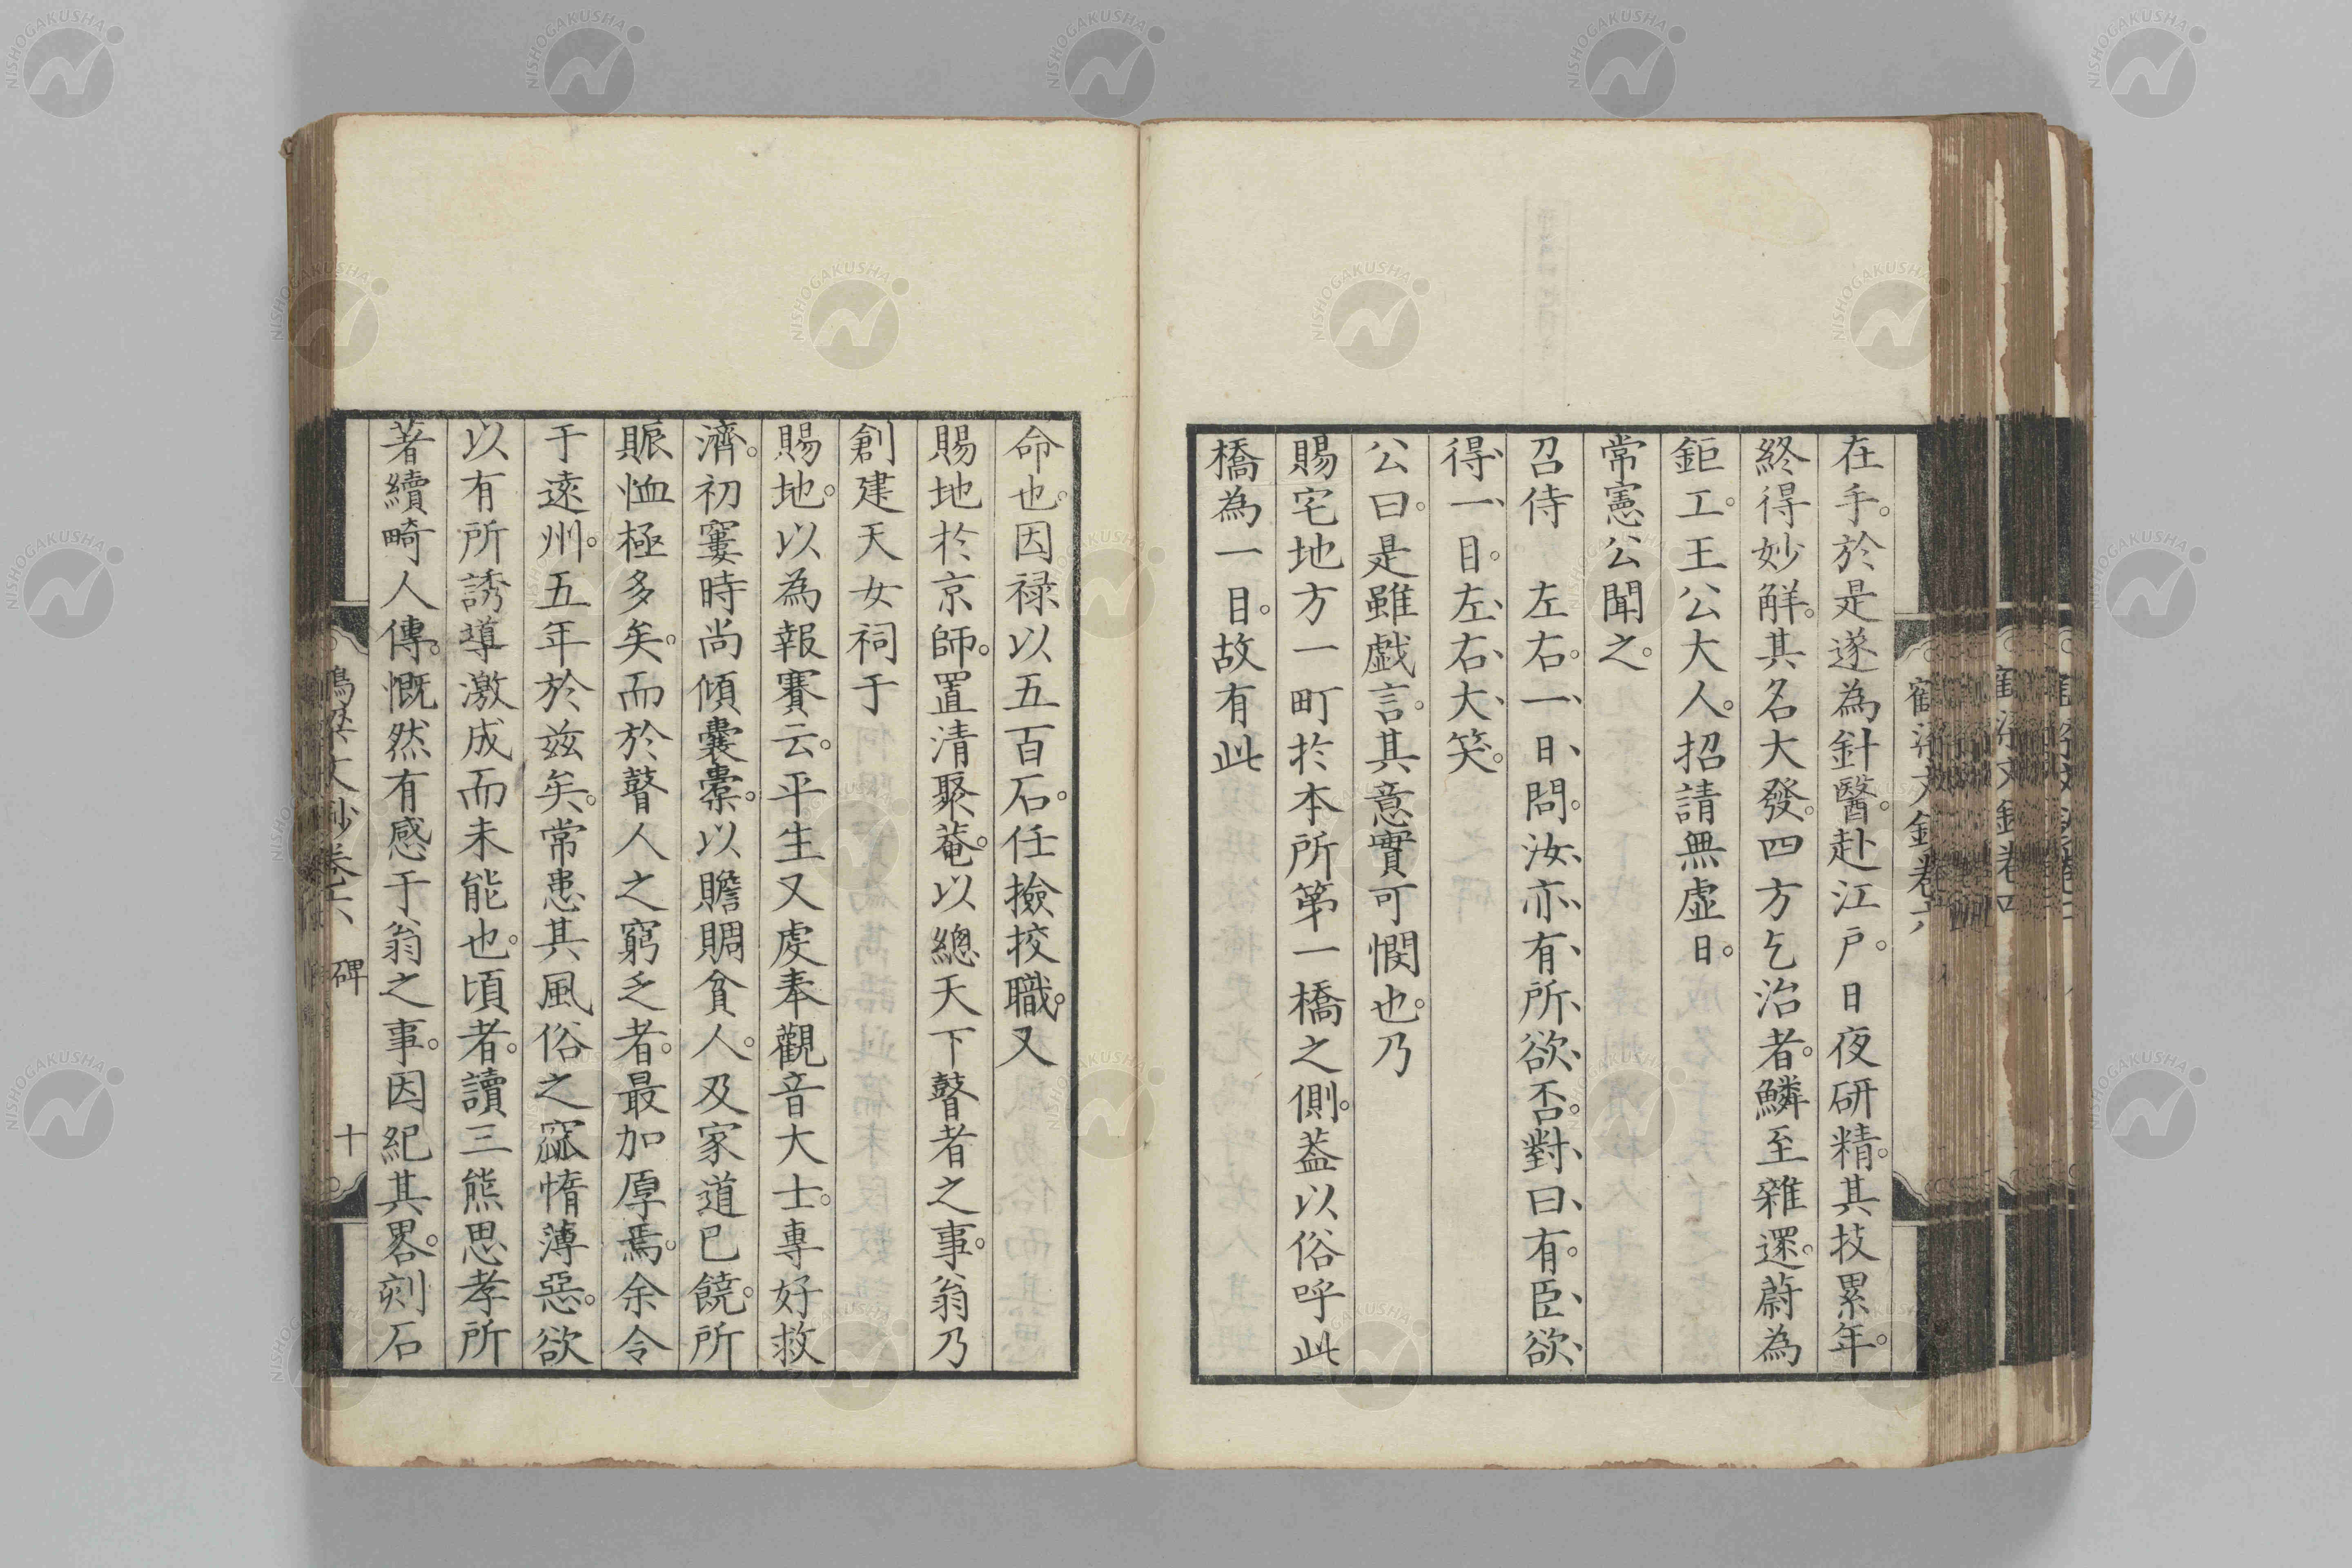 在手。於是遂為針醫。赴江戶。日夜研精。其技累年。
終得妙解。其名大發。四方乞治者。鱗至雜遝。蔚為
鉅工。王公大人。招請無虛日。
常憲公聞之。
召侍　左右。一、日、問。汝、亦、有、所、欲、否。對、曰、有。臣、欲、
得、一、目。左、右、大、笑。
公曰。是雖戯言。其意實可憫也。乃
賜宅地方一町於本所第一橋之側。蓋以俗呼此
橋為一目。故有此
命也。因禄以五百石。任撿挍職。又
賜地於京師。置清聚菴。以總天下瞽者之事。翁乃
創建天女祠于
賜地。以為報賽云。平生又虔奉觀音大士。專好救
濟。初窶時尚傾囊橐。以贍賙貧人。及家道已饒。所
賑恤極多矣。而於瞽人之窮乏者。最加厚焉。余令
于遠州。五年於玆矣。常患其風俗之窳惰薄惡。欲
以有所誘導激成而未能也。頃者。讀三熊思孝所
著續畸人傳。慨然有感于翁之事。因紀其畧。刻石
卷六　碑　十
NISHOGAKUSHA